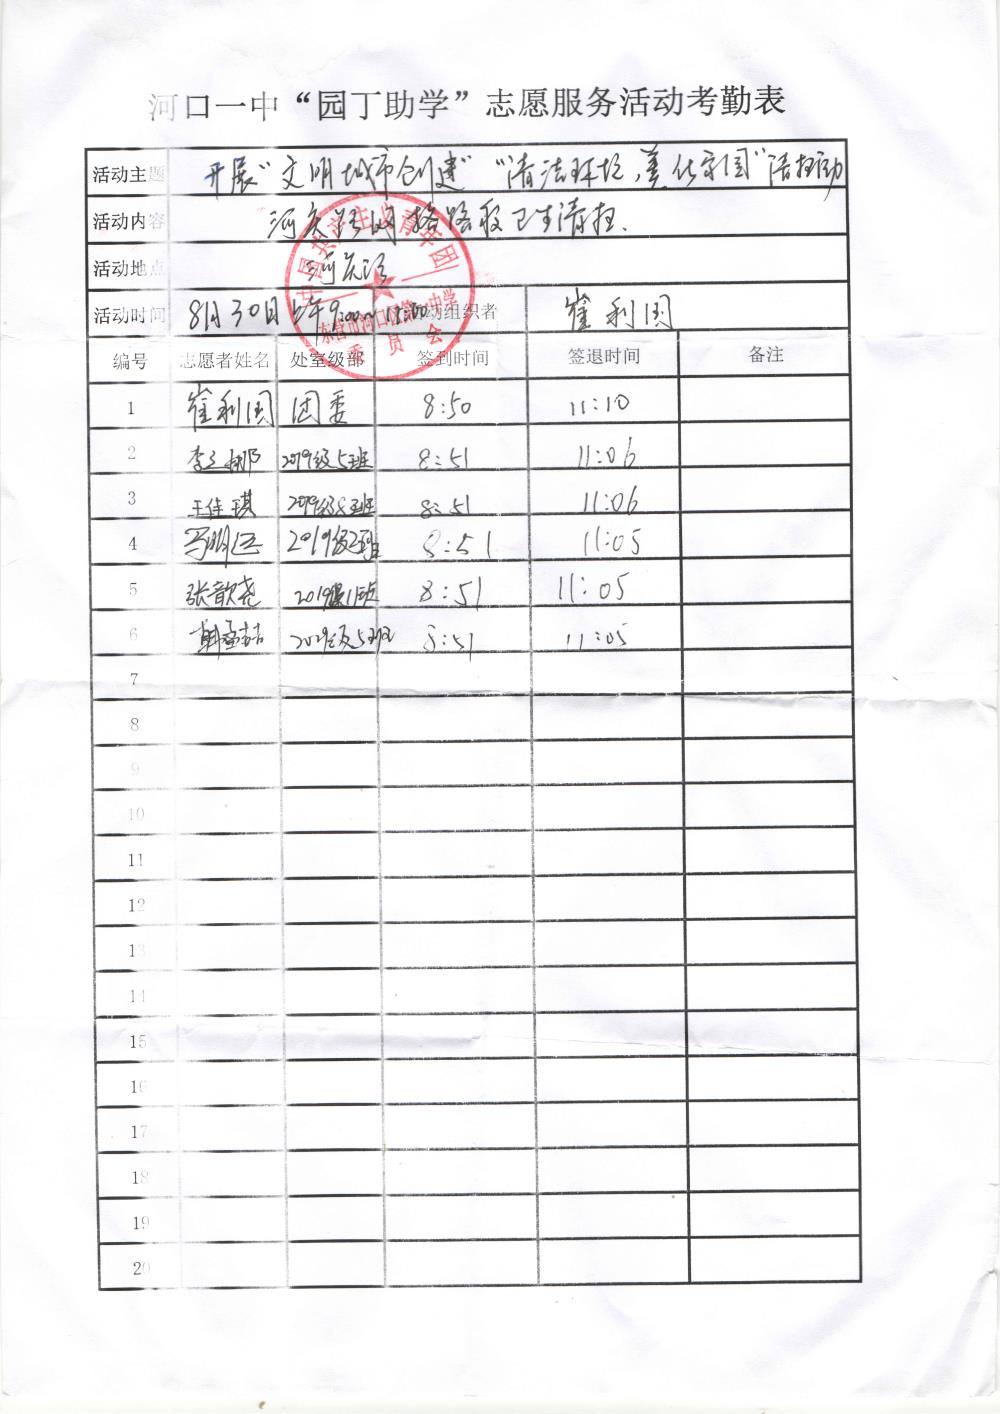 河口一中“园丁助学”志愿服务活动考勤表
活动主题 开展“文明城市创建”“清洁环境，美化家园”清扫活动
活动内容 河庆路网格路段卫生清扫.
活动地点 河庆路
活动时间 8月30日上午9:00 11:00 活动组织者 崔利国
中国共产主义青年团
东营市河口区第一中学
委员会
编号 志愿者姓名 处室级部 签到时间 签退时间 备注
1 崔利国 团委 8:50 11:10
2 李 娜 2019级5班 8:51 11:06
3 王佳琪 2019级8班 8:51 11:06
4 2019级2班 8:51 11:05
5 张歆尧 2019级11班 8:51 11:05
6 韩 2019级5班 8:51 11:05
7
8
9
10
11
12
13
14
15
16
17
18
19
20